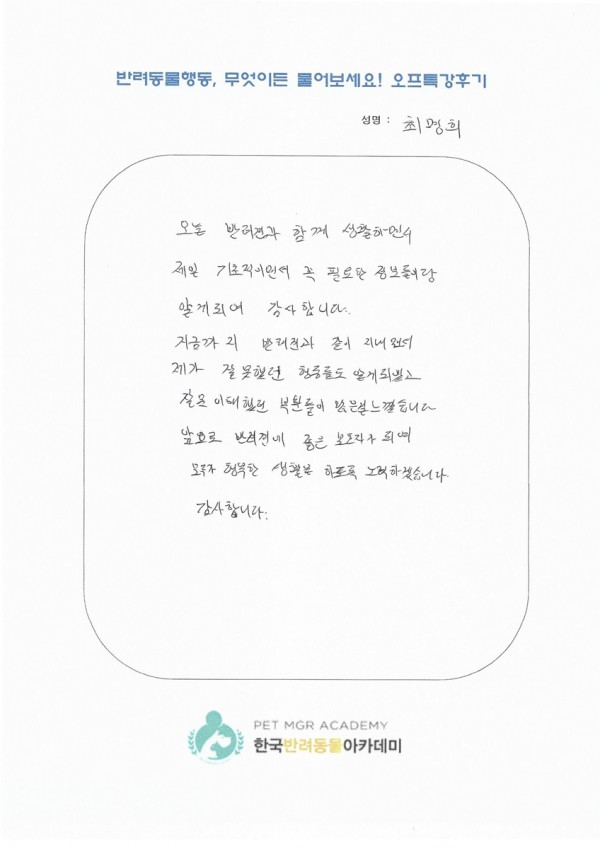 반려동물행동, 무엇이든 물어보세요! 오프특강후기
성명 : 최명희
오늘 반려견과 함께 생활하면서
제일 기초적이면서 꼭 필요한 정보들이
알게되어 감사합니다.
지금까지 반려견과 같이 지내면서
제가 잘못했던 행동들도 알게되었고
잘못 이해했던 부분들이 많은걸 느꼈습니다
앞으로 반려견에 좋은 보호자가 되며
모두가 행복한 생활을 하도록 노력하겠습니다.
감사합니다.
PET MGR ACADEMY
한국반려동물아카데미